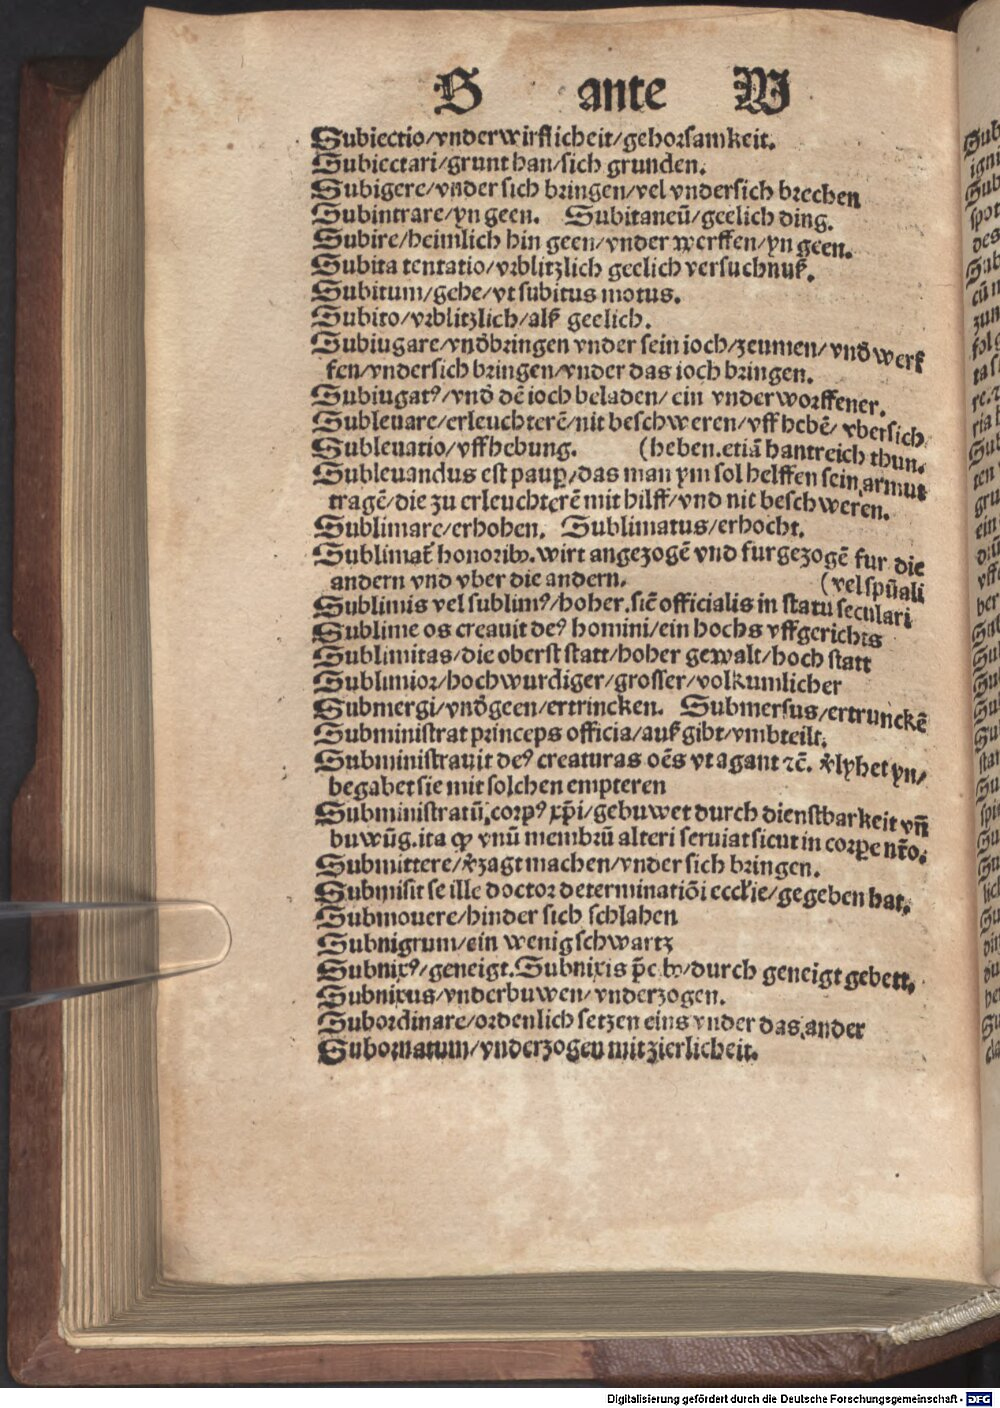 S ante W
Subiectio/vnderwirflicheit/gehorsamkeit.
Subiectari/grunt han/sich grunden.
Subigere/vnder sich bringen/vel vndersich brechen
Subintrare/yn geen. Subitaneū/geelich ding.
Subire/heimlich hin geen/vnder werffen/yn geen.
Subita tentatio/vrblitzlich geelich versuchnuß.
Subitum/gehe/vt subitus motus.
Subito/vrblitzlich/alß geelich.
Subiugare/vnd̄bringen vnder sein ioch/zeumen/vnd̄werf
fen/vndersich bringen/vnder das ioch bringen.
Subiugatꝰ/vnd̄ dē ioch beladen/ein vnderworffener.
Subleuare/erleuchterē/nit beschweren/vff hebē/vbersich
Subleuatio/vffhebung. (heben.etiā hantreich thun.
Subleuandus est paup̲/das man ym sol helffen sein armut
tragē/die zu erleuchterē mit hilff/vnd nit beschweren.
Sublimare/erhohen. Sublimatus/erhocht.
Sublimat̄ honorib⁹.wirt angezogē vnd furgezogē fur die
andern vnd vber die andern. (vel spūali
Sublimis vel sublimꝰ/hoher.sic̄ officialis in statu seculari
Sublime os creauit deꝰ homini/ein hochs vffgerichts
Sublimitas/die oberst statt/hoher gewalt/hoch statt
Sublimior/hochwurdiger/grosser/volkumlicher
Submergi/vnd̄geen/ertrincken. Submersus/ertrunckē
Subministrat princeps officia/auß gibt/vmbteilt.
Subministrauit deꝰ creaturas oēs vt agant ⁊c̄. v̄lyhet yn/
begabet sie mit solchen empteren
Subministratū corpꝰ xp̄i/gebuwet durch dienstbarkeit vn̄
buwūg.ita ꝙ vnū membrū alteri seruiat sicut in corpe nr̄o.
Submittere/v̄zagt machen/vnder sich bringen.
Submisit se ille doctor determinatiōi eccl'ie/gegeben hat.
Submouere/hinder sich schlahen
Subnigrum/ein wenig schwartz
Subnixꝰ/geneigt.Subnixis p̄cib⁹/durch geneigt gebett.
Subnixus/vnderbuwen/vnderzogen.
Subordinare/ordenlich setzen eins vnder das ander
Subornatum/vnderzogen mit zierlicheit.
Digitalisierung gefördert durch die Deutsche Forschungsgemeinschaft - DFG